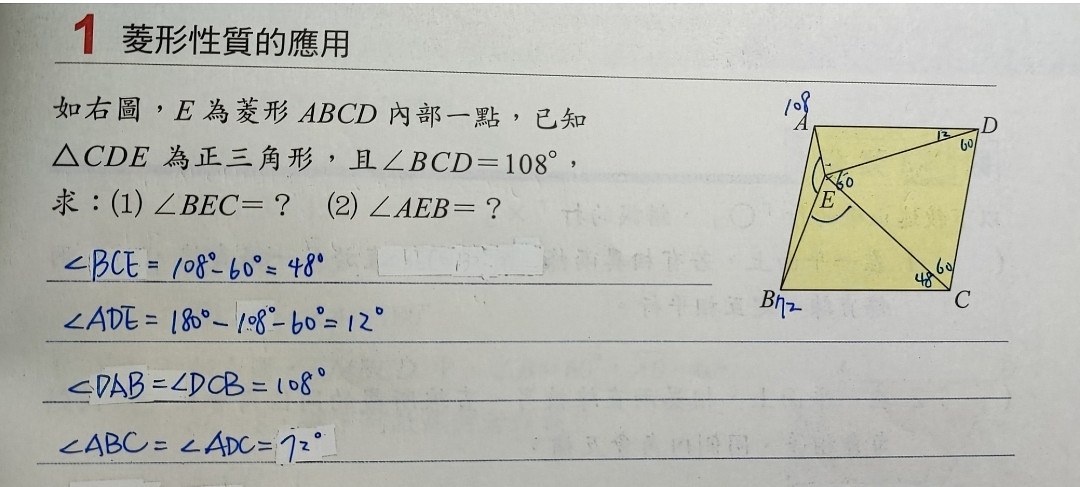 1 菱形性質的應用
如右圖，E 為菱形 ABCD 內部一點，已知
△CDE 為正三角形，且∠BCD＝108°，
求：(1) ∠BEC＝？ (2) ∠AEB＝？
∠BCE = 108° - 60° = 48°
∠ADE = 180° - 108° - 60° = 12°
∠DAB = ∠DCB = 108°
∠ABC = ∠ADC = 72°
108
A
12
D
60
60
E
60
48
B
72
C